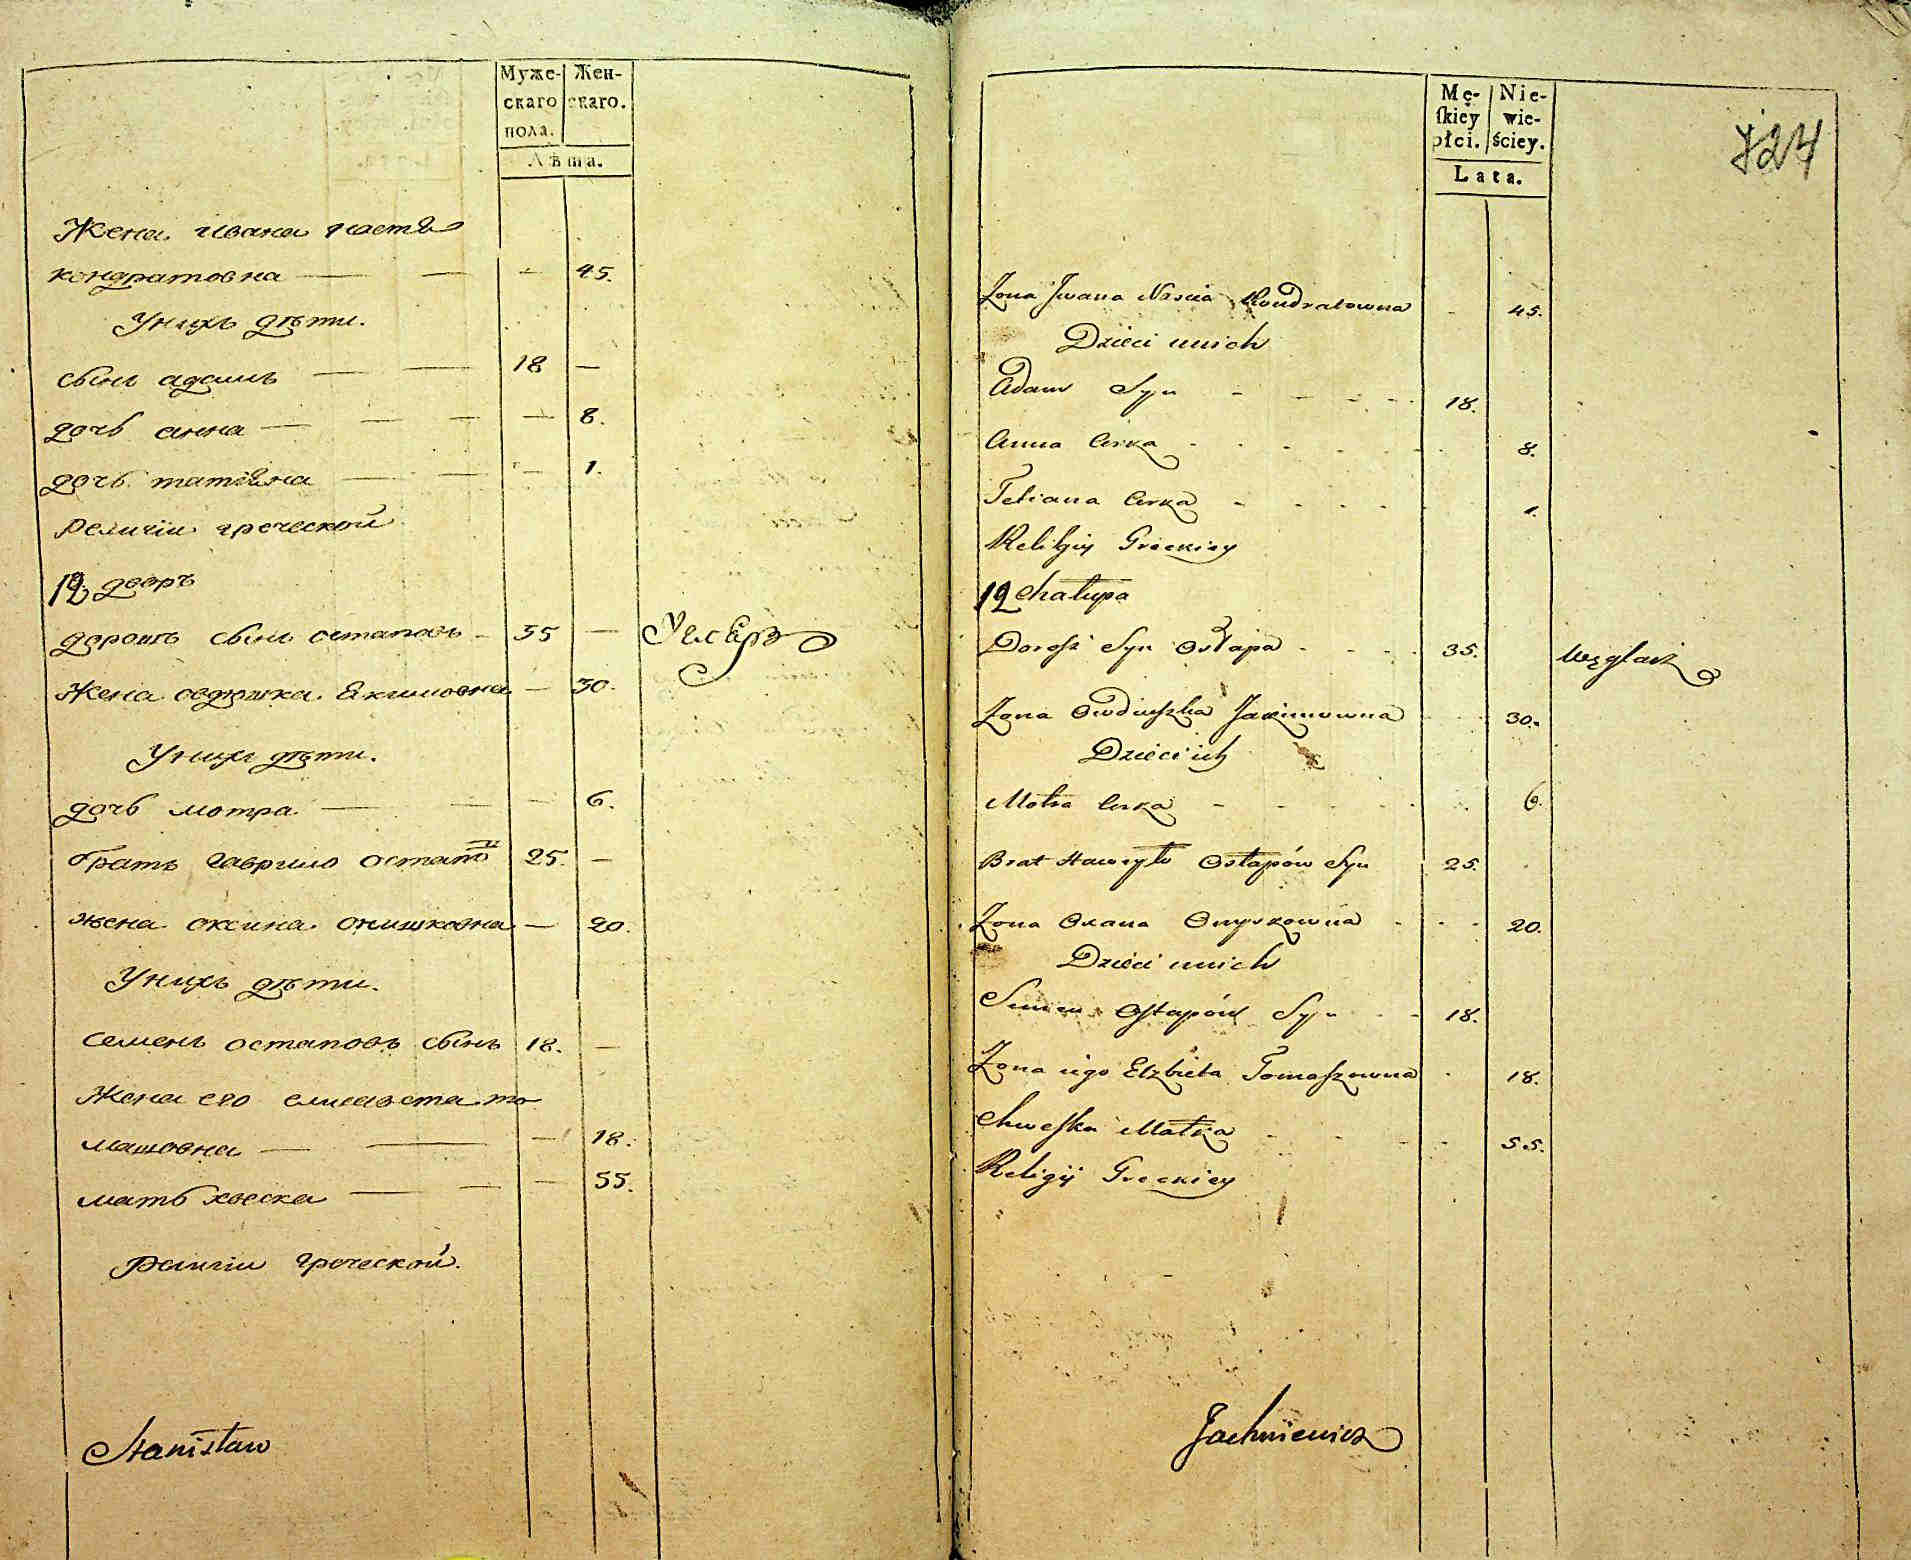 Муже-
скаго
пола.
Жен-
скаго.
Лѣта.
Жена ивана настѣ
кондратовна — — — 45.
Унихъ дѣти.
сынъ адамъ — — 18 —
дочь анна — — — — 8.
дочь татіѣна — — — 1.
религіи греческой
12 дворъ
дорошъ сынъ остаповъ — 35 —
Жена овдюшка Екимовна — 30.
Унихъ дѣти.
дочь мотра — — — 6.
братъ гаврило остапо 25. —
жена оксина онишковна — 20.
Унихъ дѣти.
семенъ остаповъ сынъ 18. —
Жена его елисавета то
машовна — — — 18.
мать хвеска — — — 55.
религіи греческой.
Stanisław
Mę-
skiey
płci.
Nie-
wie-
ściey.
Lata.
724
Zona Jwana Nascia Kondratowna - 45.
Dzieci unich
Adam Syn - - - - 18.
Anna Corka - - - - 8.
Tetiana Corka - - - - 1.
Religiy Greckiey
12 Chałupa
Dorosz Syn Ostapa - - - 35. Węglarz
Zona Owdiuszka Jakimowna - - 30.
Dzieci ich
Motra Corka - - - - 6.
Brat Hawryło Ostapów Syn 25.
Zona Oxana Onyszkowna - - - 20.
Dzieci unich
Semen Ostapów Syn - - 18.
Zona iego Elzbieta Tomaszowna - 18.
Chweska Matka - - - - 55.
Religiy Greckiey
Jachniewicz